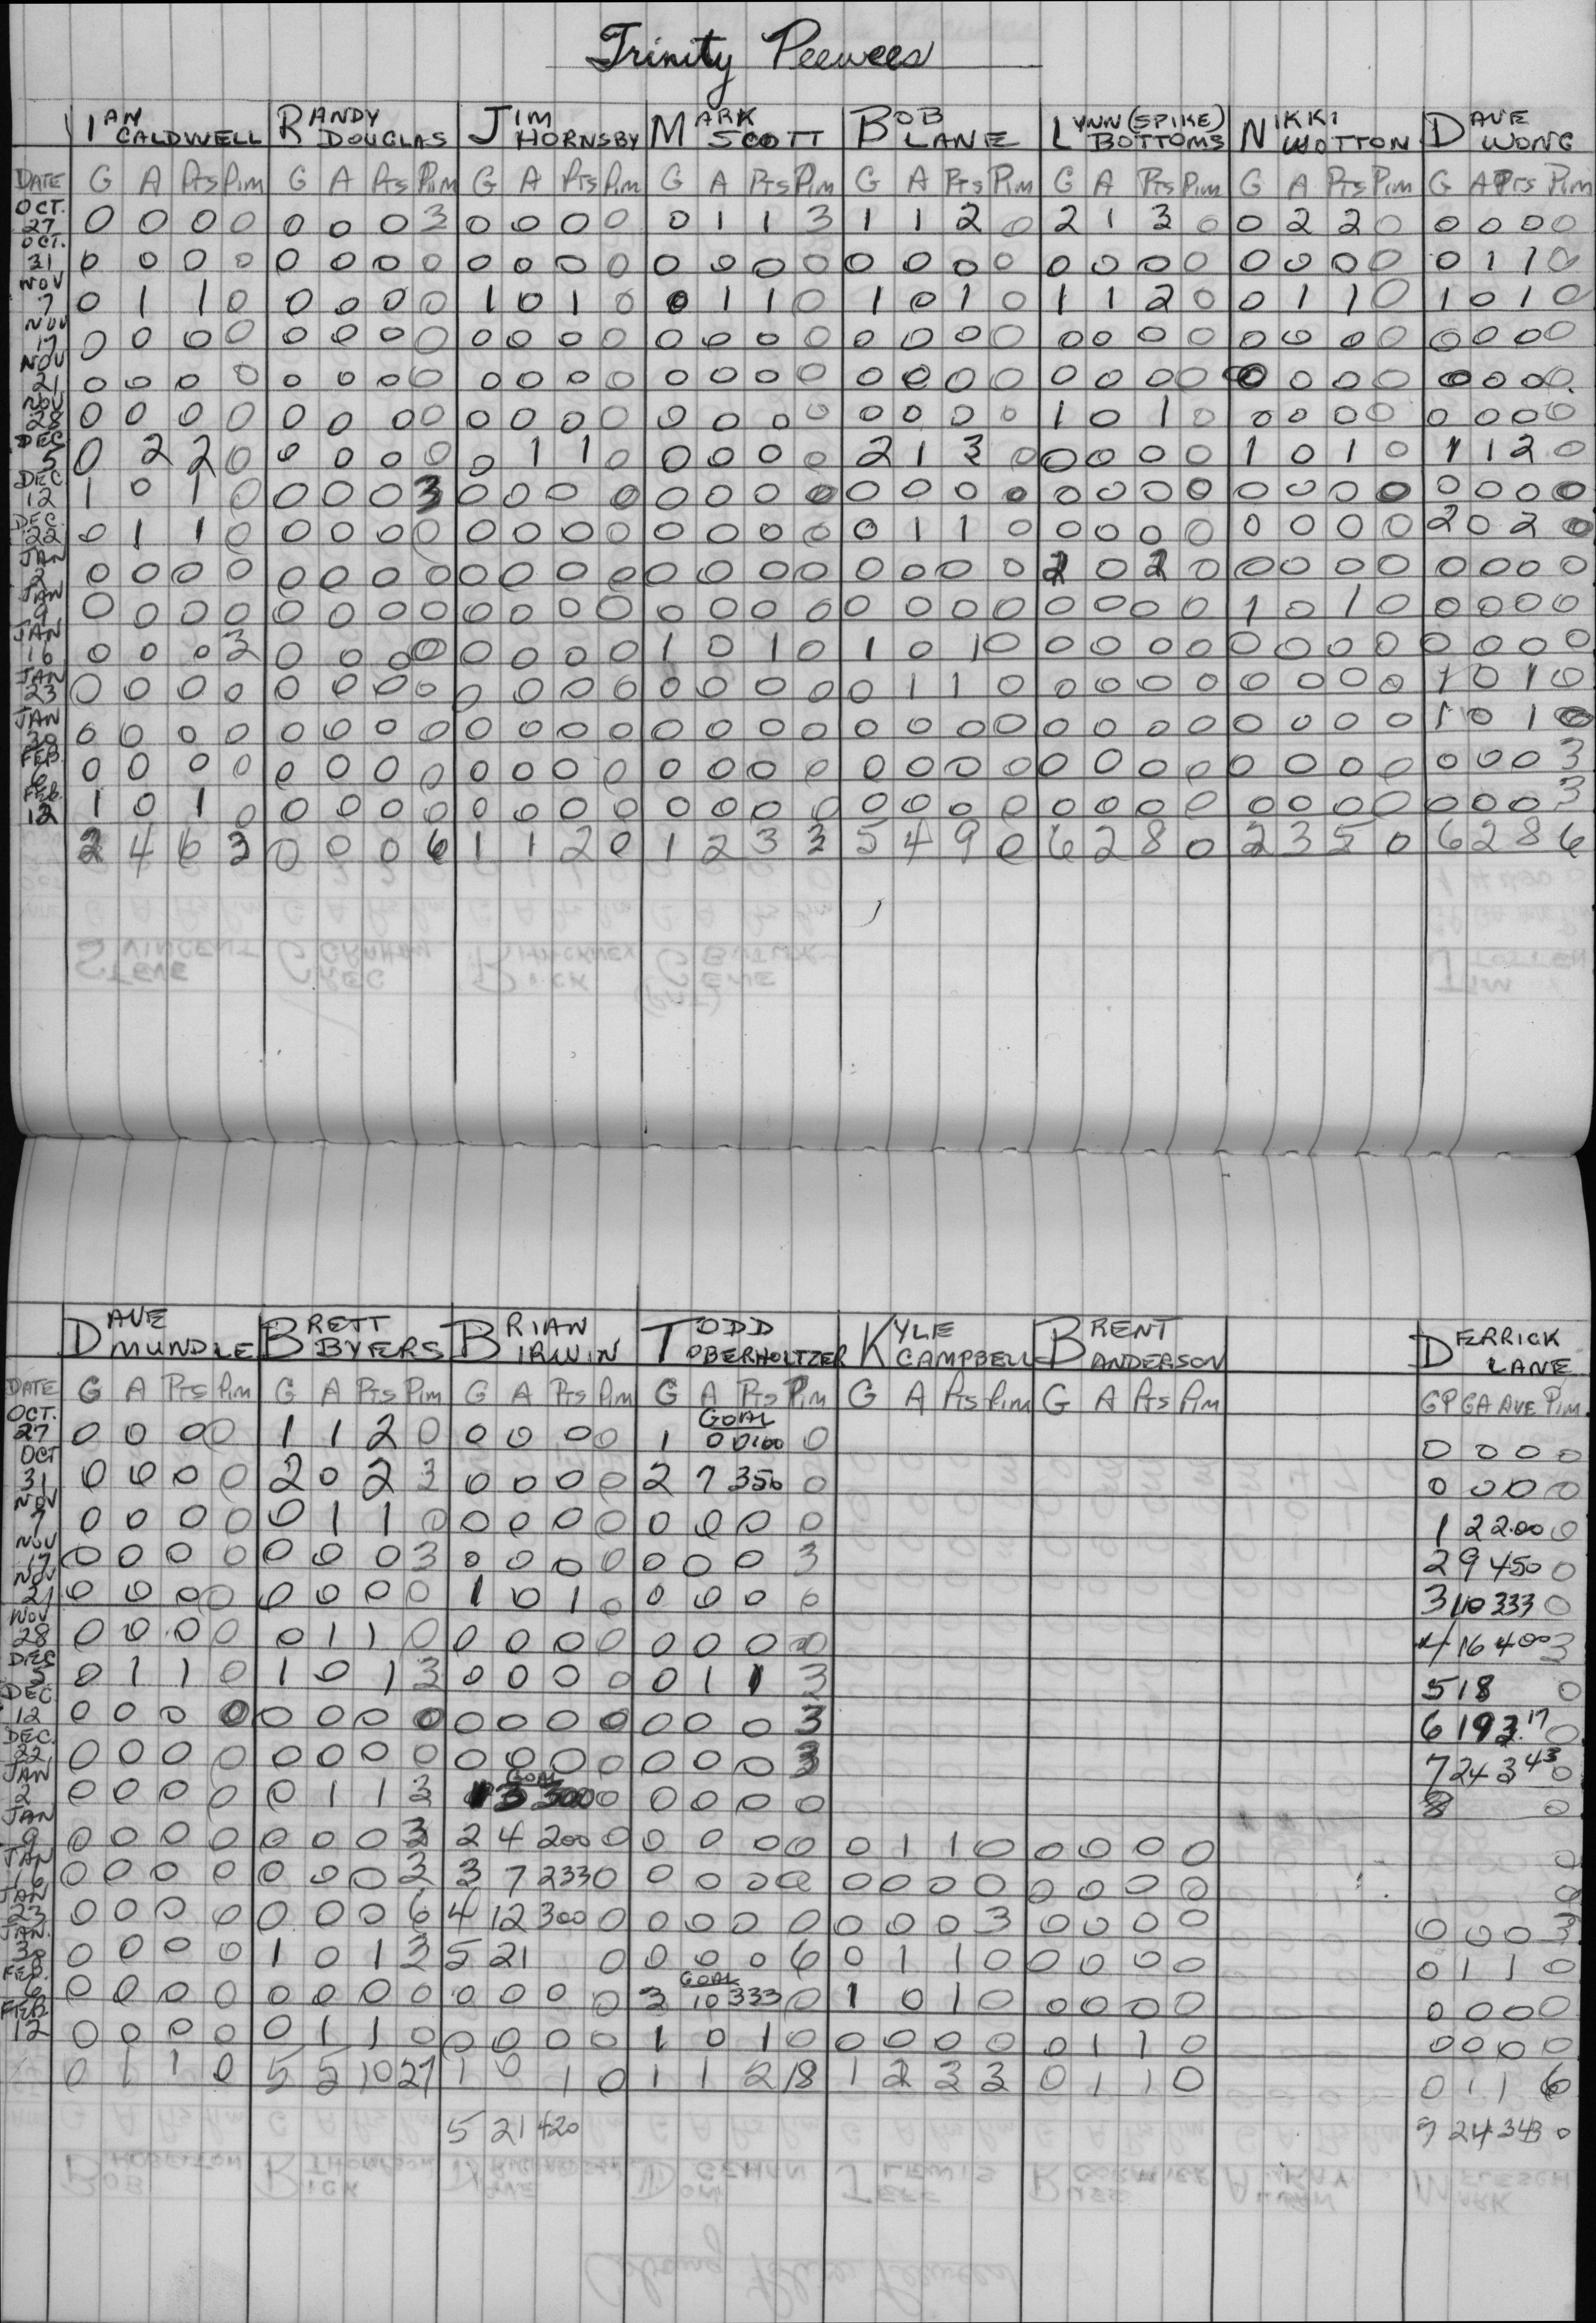 Trinity Peewees
IAN CALDWELL RANDY DOUGLAS JIM HORNSBY MARK SCOTT BOB LANE LYNN (SPIKE) BOTTOMS NIKKI WOTTON DAVE WONG
DATE G A Pts Pim G A Pts Pim G A Pts Pim G A Pts Pim G A Pts Pim G A Pts Pim G A Pts Pim G A Pts Pim
OCT. 27 0 0 0 0 0 0 0 3 0 0 0 0 0 1 1 3 1 1 2 0 2 1 3 0 0 2 2 0 0 0 0 0
OCT. 31 0 0 0 0 0 0 0 0 0 0 0 0 0 0 0 0 0 0 0 0 0 0 0 0 0 0 0 0 0 1 1 0
NOV 7 0 1 1 0 0 0 0 0 1 0 1 0 0 1 1 0 1 0 1 0 1 1 2 0 0 1 1 0 1 0 1 0
NOV 17 0 0 0 0 0 0 0 0 0 0 0 0 0 0 0 0 0 0 0 0 0 0 0 0 0 0 0 0 0 0 0 0
NOV 21 0 0 0 0 0 0 0 0 0 0 0 0 0 0 0 0 0 0 0 0 0 0 0 0 0 0 0 0 0 0 0 0
NOV 28 0 0 0 0 0 0 0 0 0 0 0 0 0 0 0 0 0 0 0 0 1 0 1 0 0 0 0 0 0 0 0 0
DEC 5 0 2 2 0 0 0 0 0 0 1 1 0 0 0 0 0 2 1 3 0 0 0 0 0 1 0 1 0 1 1 2 0
DEC 12 1 0 1 0 0 0 0 3 0 0 0 0 0 0 0 0 0 0 0 0 0 0 0 0 0 0 0 0 0 0 0 0
DEC. 22 0 1 1 0 0 0 0 0 0 0 0 0 0 0 0 0 0 1 1 0 0 0 0 0 0 0 0 0 2 0 2 0
JAN 2 0 0 0 0 0 0 0 0 0 0 0 0 0 0 0 0 0 0 0 0 2 0 2 0 0 0 0 0 0 0 0 0
JAN 9 0 0 0 0 0 0 0 0 0 0 0 0 0 0 0 0 0 0 0 0 0 0 0 0 1 0 1 0 0 0 0 0
JAN 16 0 0 0 3 0 0 0 0 0 0 0 0 1 0 1 0 1 0 1 0 0 0 0 0 0 0 0 0 0 0 0 0
JAN 23 0 0 0 0 0 0 0 0 0 0 0 0 0 0 0 0 0 1 1 0 0 0 0 0 0 0 0 0 1 0 1 0
JAN 30 0 0 0 0 0 0 0 0 0 0 0 0 0 0 0 0 0 0 0 0 0 0 0 0 0 0 0 0 1 0 1 0
FEB. 6 0 0 0 0 0 0 0 0 0 0 0 0 0 0 0 0 0 0 0 0 0 0 0 0 0 0 0 0 0 0 0 3
FEB. 12 1 0 1 0 0 0 0 0 0 0 0 0 0 0 0 0 0 0 0 0 0 0 0 0 0 0 0 0 0 0 0 3
2 4 6 3 0 0 0 6 1 1 2 0 1 2 3 3 5 4 9 0 6 2 8 0 2 3 5 0 6 2 8 6
DAVE MUNDLE BRETT BYERS BRIAN IRWIN TODD OBERHOLTZER KYLE CAMPBELL BRENT ANDERSON DERRICK LANE
DATE G A Pts Pim G A Pts Pim G A Pts Pim G A Pts Pim G A Pts Pim G A Pts Pim GP GA AVE Pim
GOAL
OCT. 27 0 0 0 0 1 1 2 0 0 0 0 0 1 0 0.00 0 0 0 0 0
OCT 31 0 0 0 0 2 0 2 3 0 0 0 0 2 7 350 0 0 0 0 0
NOV 7 0 0 0 0 0 1 1 0 0 0 0 0 0 0 0 0 1 2 2.00 0
NOV 17 0 0 0 0 0 0 0 3 0 0 0 0 0 0 0 3 2 9 450 0
NOV 21 0 0 0 0 0 0 0 0 1 0 1 0 0 0 0 0 3 10 333 0
NOV 28 0 0 0 0 0 1 1 0 0 0 0 0 0 0 0 0 4 16 400 3
DEC 5 0 1 1 0 1 0 1 3 0 0 0 0 0 1 1 3 5 18 0
DEC. 12 0 0 0 0 0 0 0 0 0 0 0 0 0 0 0 3 6 19 3.17 0
DEC. 22 0 0 0 0 0 0 0 0 0 0 0 0 0 0 0 3 7 24 3 43 0
GOAL
JAN 2 0 0 0 0 0 1 1 3 1 3 300 0 0 0 0 0 8 0
JAN 9 0 0 0 0 0 0 0 3 2 4 200 0 0 0 0 0 0 1 1 0 0 0 0 0 0
JAN 16 0 0 0 0 0 0 0 3 3 7 233 0 0 0 0 0 0 0 0 0 0 0 0 0 0
JAN 23 0 0 0 0 0 0 0 6 4 12 300 0 0 0 0 0 0 0 0 3 0 0 0 0 0 0 0 3
JAN. 30 0 0 0 0 1 0 1 3 5 21 0 0 0 0 6 0 1 1 0 0 0 0 0 0 1 1 0
GOAL
FEB. 6 0 0 0 0 0 0 0 0 0 0 0 0 3 10 333 0 1 0 1 0 0 0 0 0 0 0 0 0
FEB 12 0 0 0 0 0 1 1 0 0 0 0 0 1 0 1 0 0 0 0 0 0 1 1 0 0 0 0 0
0 1 1 0 5 5 10 27 1 0 1 0 1 1 2 18 1 2 3 3 0 1 1 0 0 1 1 6
5 21 420 7 24 343 0